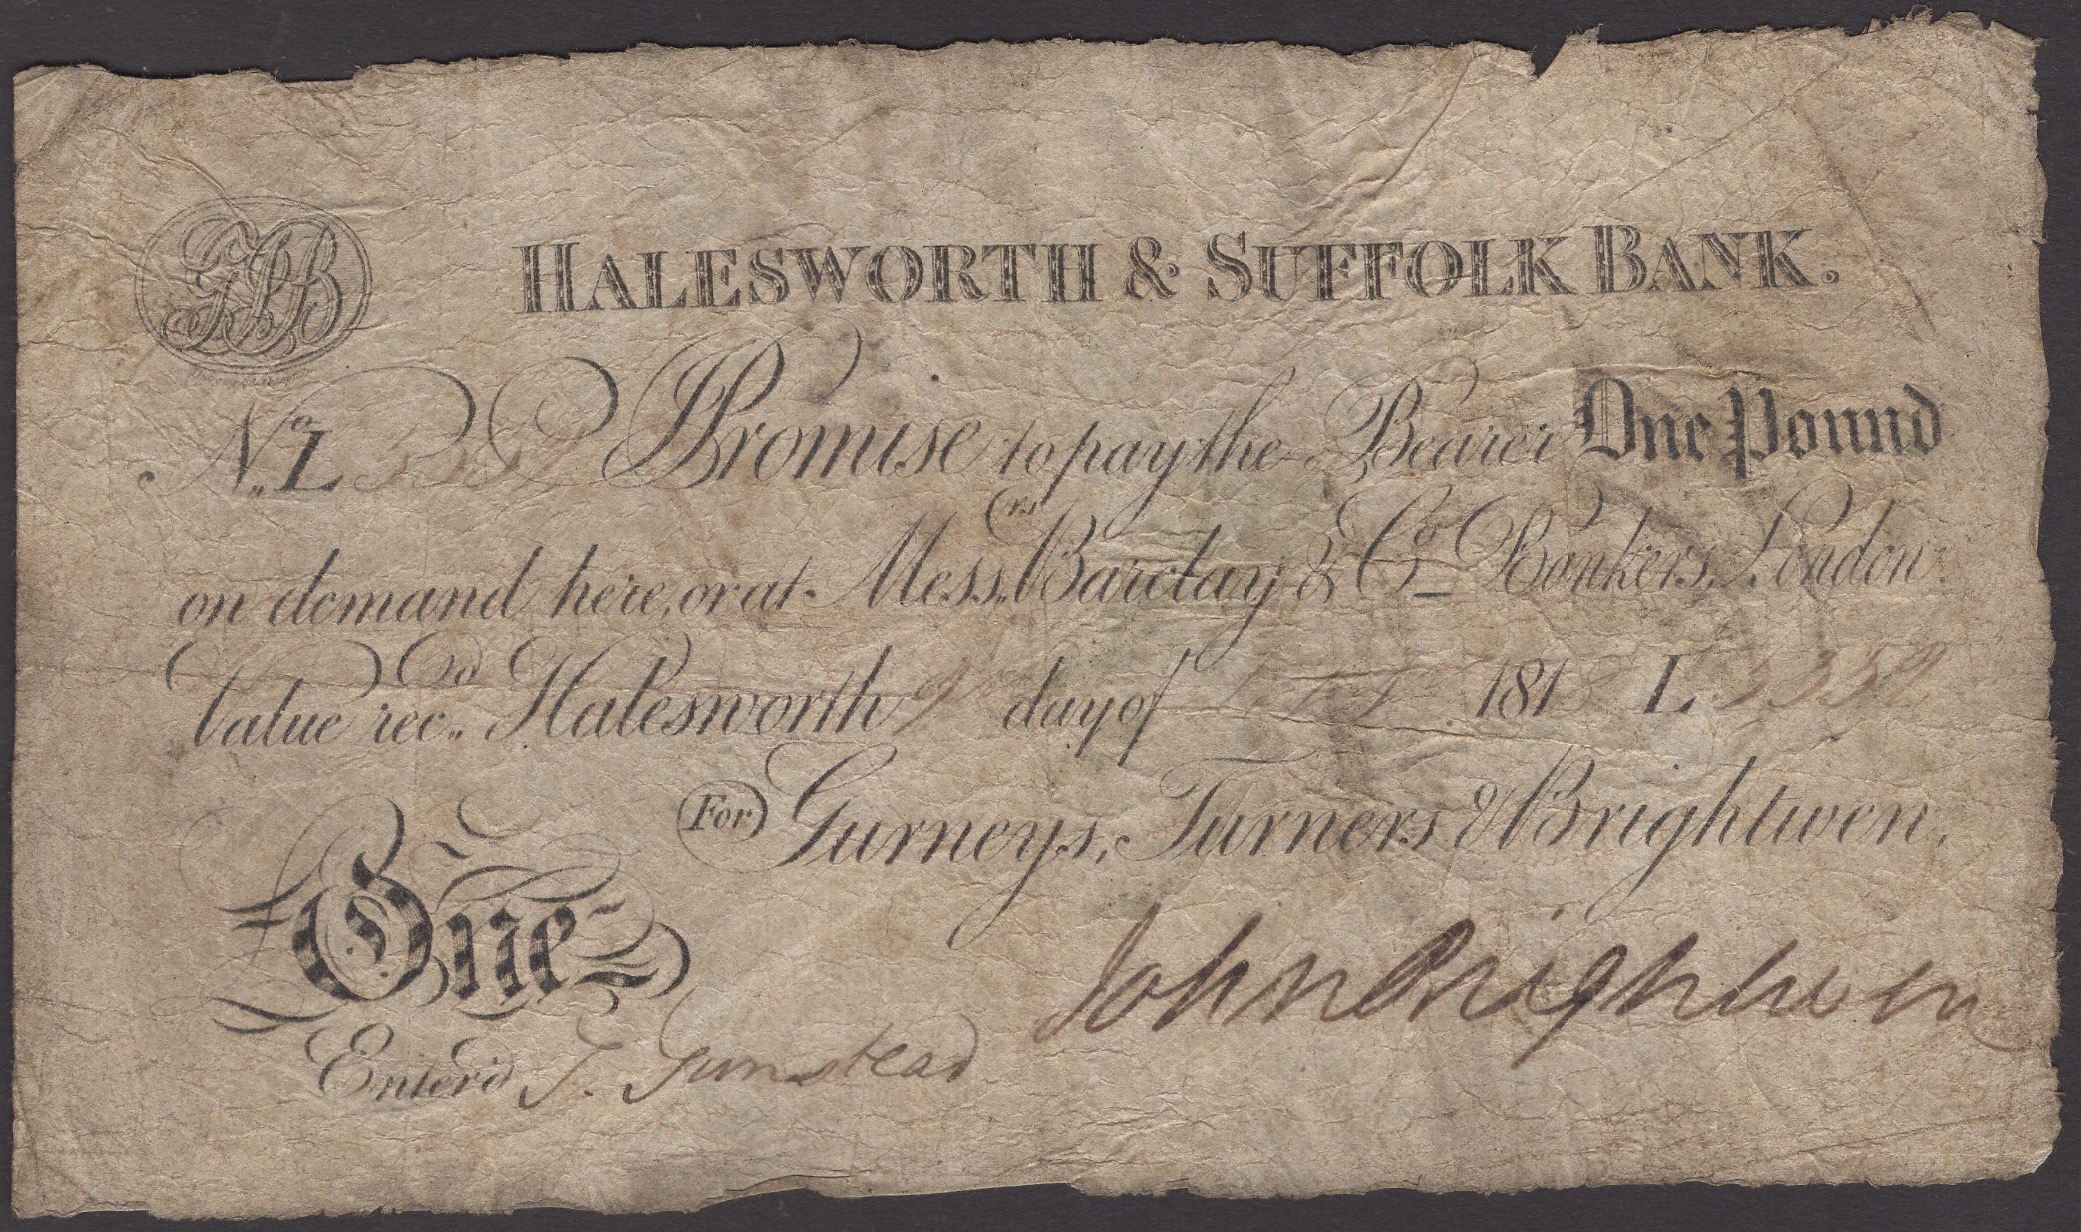 GTB
HALESWORTH & SUFFOLK BANK.
No. L 5359 I Promise to pay the Bearer One Pound
on demand here, or at Messrs. Barclay & Co. Bankers, London.
Value recd. Halesworth day of 1818 L 5359
(For) Gurneys, Turners & Brightwen.
One
John Brightwen
Enterd T. Gunstead